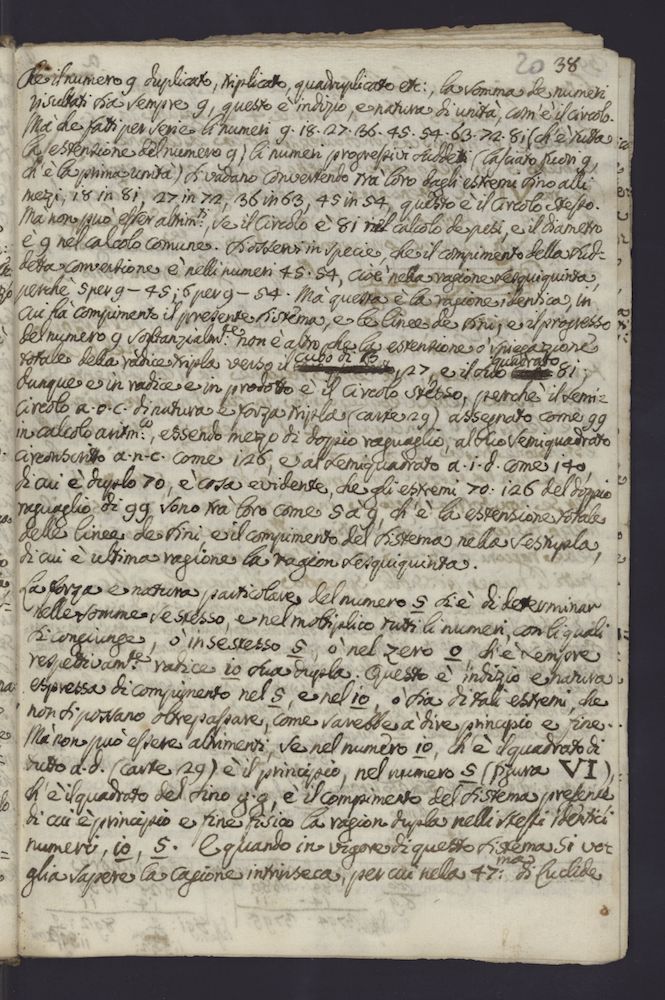 20 38
Che il numero 9 duplicato, triplicato, quadruplicato etc:, la somma de numeri
risultati sia sempre 9, questo è indizio, e natura di unità, com'è il circolo.
Mà che fatti per serie li numeri 9. 18. 27. 36. 45. 54. 63. 72. 81 (ch'è tutta
la estensione del numero 9) li numeri progressivi suddetti (lasciato fuori 9,
ch'è la prima unità) si vadano convertendo trà loro dagli estremi sino alli
mezi, 18 in 81, 27 in 72, 36 in 63, 45 in 54, questo è il Circolo stesso.
Mà non può esser altrim:ti, se il Circolo è 81 nel calcolo de pesi, e il diametro
è 9 nel calcolo comune. Si osservi in specie, che il compimento della sud-
detta conversione è nelli numeri 45. 54, cioè nella ragione sesquiquinta,
perche 5 per 9 – 45; 6 per 9 – 54. Mà questa è la ragione identica, in
cui hà compimento il presente sistema, e le linee de sini, e il progresso
del numero 9 sostanzialm:te non è altro che la estensione o spiegazione
totale della radice tripla verso il cubo di 3 27, e il suo quadrato 81;
dunque e in radice e in prodotto è il Circolo stesso, perchè il semi-
circolo a. o. c. di natura e forza tripla (carte 29) assegnato come 99
in calcolo aritm:co, essendo mezo di doppio raguaglio, al suo semiquadrato
circonscritto a. n. c. come 126, e al semiquadrato a. i. d. come 140,
di cui è duplo 70, è cosa evidente, che gli estremi 70. 126 del doppio
raguaglio di 99 sono trà loro come 5 a 9, ch'è la estensione totale
delle linee de sini e il compimento del sistema nella sestupla,
di cui è ultima ragione la ragion sesquiquinta.
La forza e natura particolare del numero 5 si è di determinar
nelle somme se stesso, e nel moltiplico tutti li numeri, con li quali
si congiunge, ò in se stesso 5, ò nel zero 0, ch'è sempre
respettivam:te radice 10 sua dupla. Questo è indizio e natura
espressa di compimento nel 5, e nel 10, ò sia di tali estremi, che
non si possano oltrepassare, come sarebbe à dire principio e fine.
Mà non può essere altrimenti, se nel numero 10, ch'è il quadrato di
tutto a. d. (carte 29) è il principio, nel numero 5 (figura VI),
ch'è il quadrato del sino q. g, è il compimento del sistema presente
di cui è principio e fine fisico la ragion dupla nelli stessi identici
numeri, 10, 5. E quando in vigore di questo sistema si vo-
glia sapere la cagione intrinseca, per cui nella 47:ma di Euclide